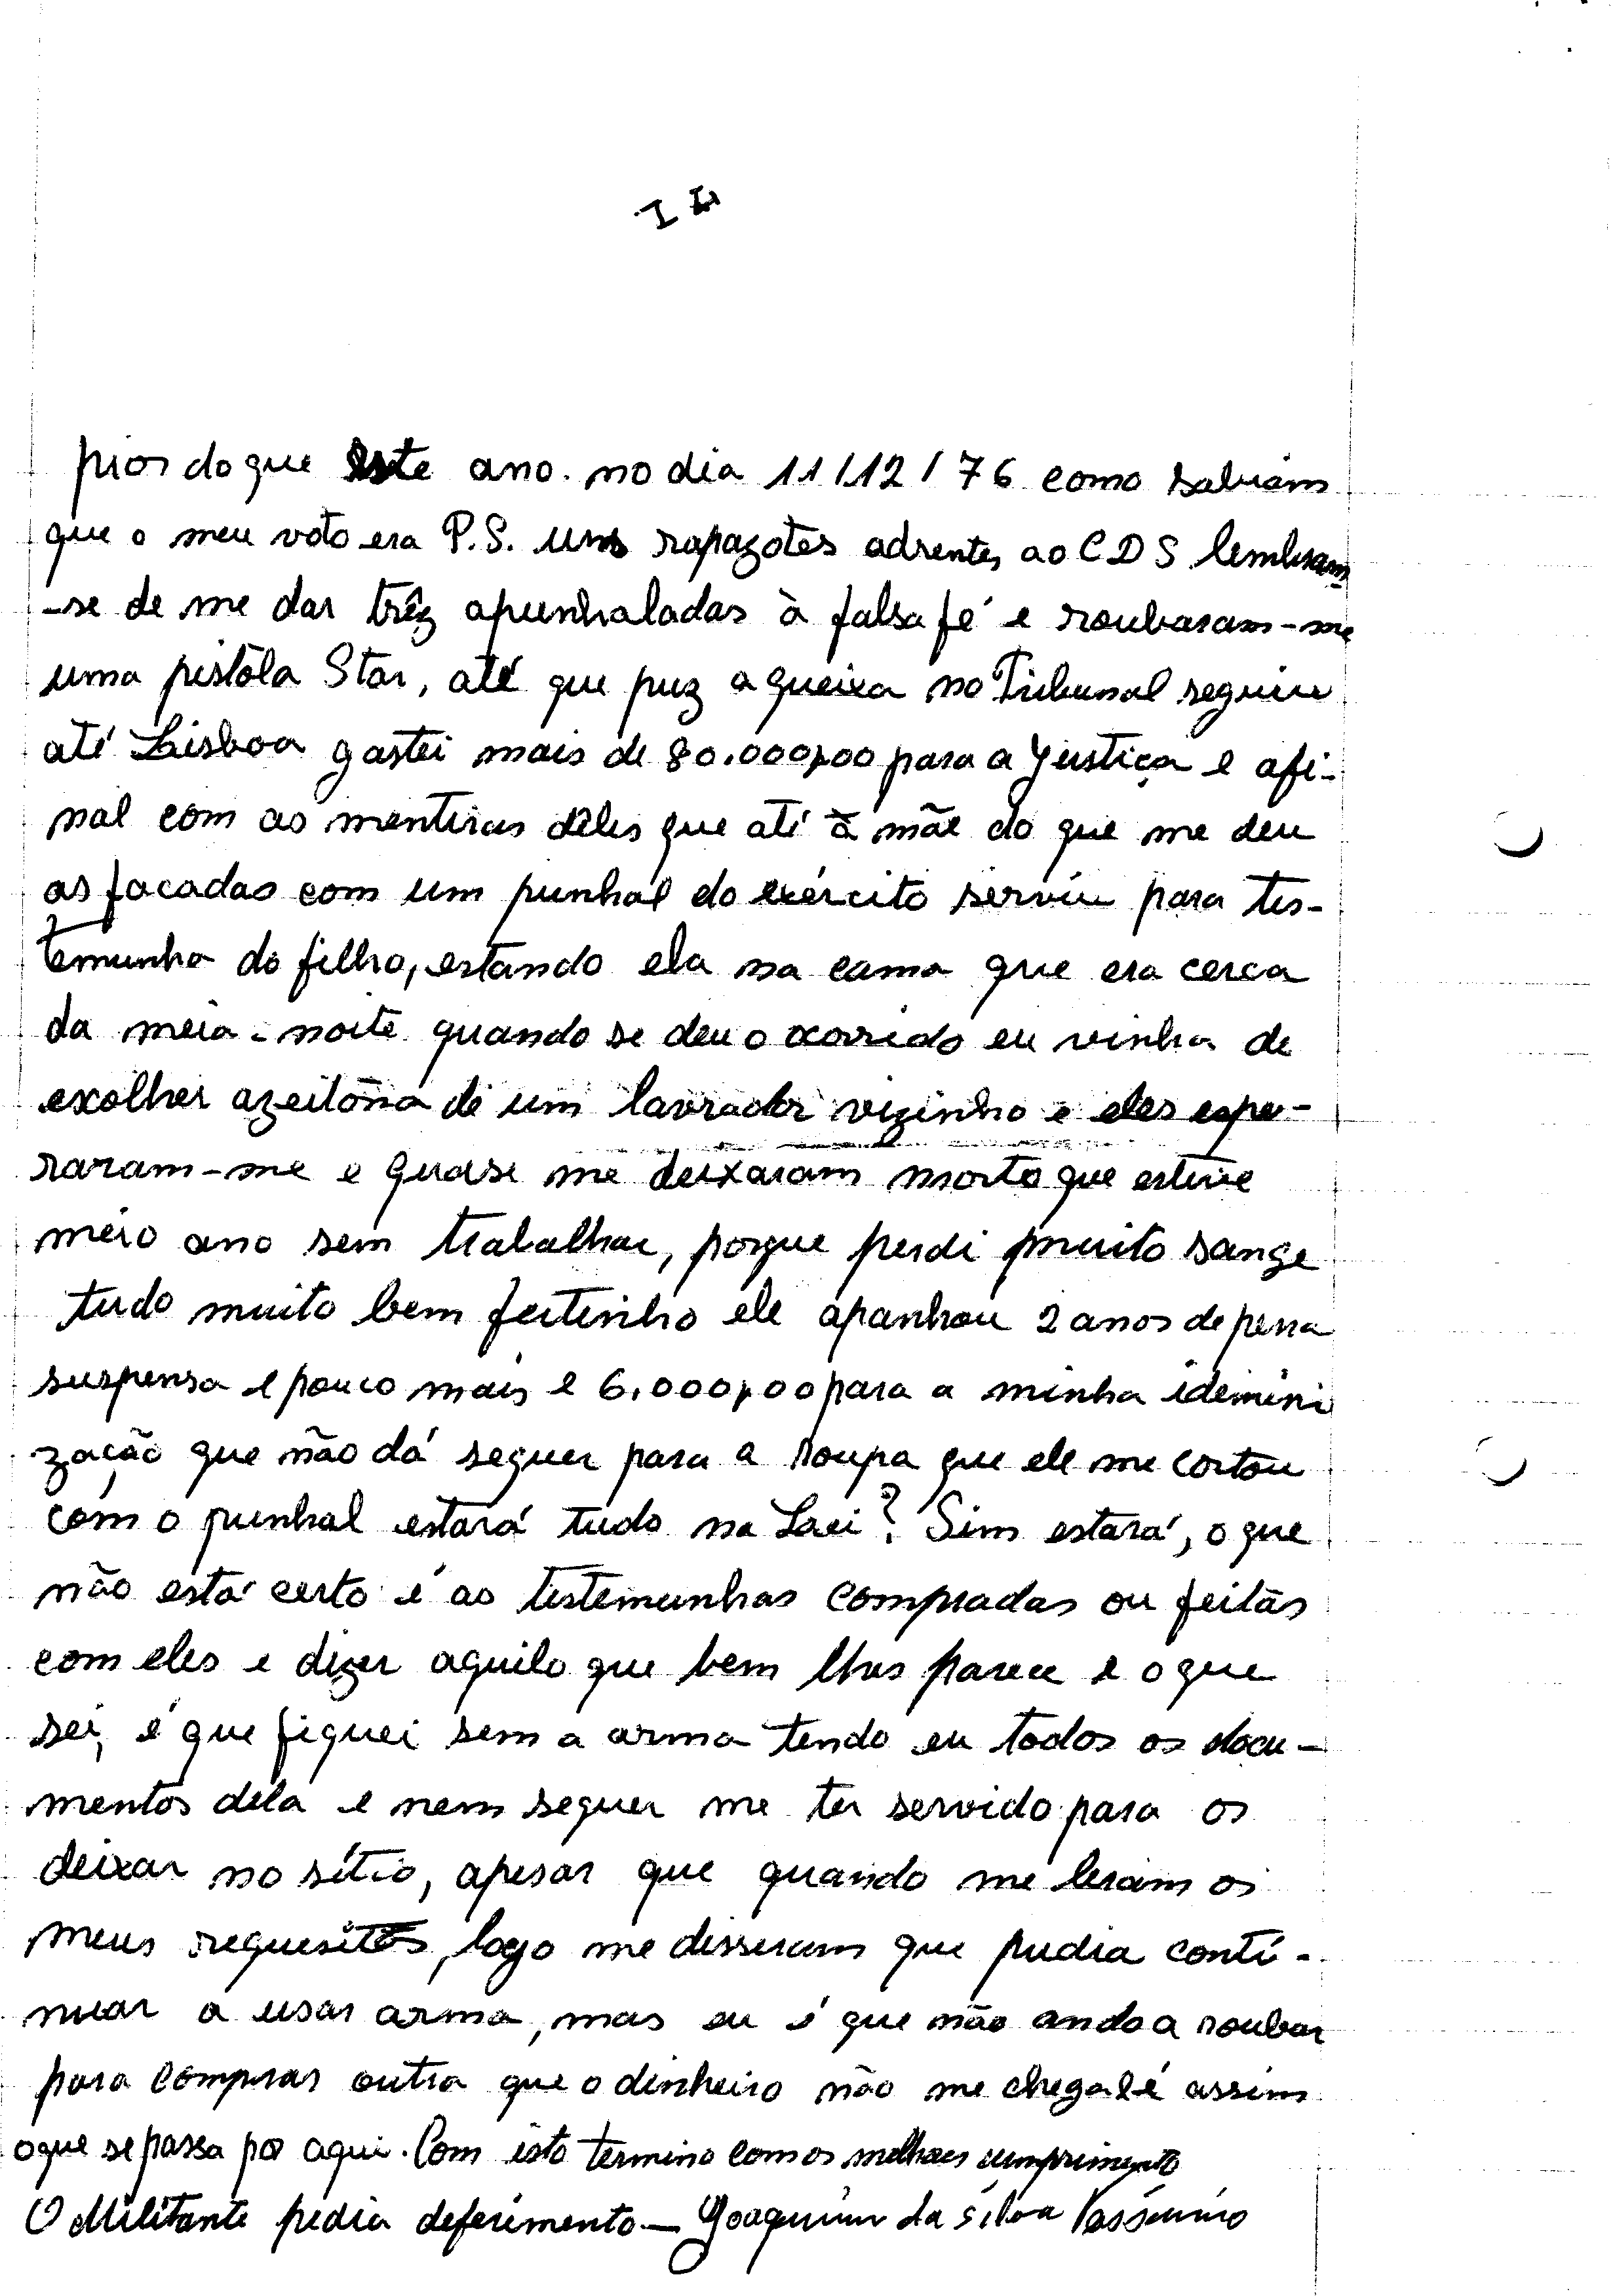 II
pior do que este ano. no dia 11/12/76 como sabiam
que o meu voto era P.S. uns rapazotes adrentes ao CDS lembram
-se de me dar trêz apunhaladas à falsa fé e roubaram-me
uma pistola Star, até que puz a queixa no Tribunal seguiu
até Lisboa gastei mais de 80.000,00 para a Justiça e afi-
nal com as mentiras deles que até à mãe do que me deu
as facadas com um punhal do exército serviu para tes-
temunha do filho, estando ela na cama que era cerca
da meia-noite quando se deu o ocorrido eu vinha de
excolher azeitona de um lavrador vizinho e eles espe-
raram-me e quase me deixaram morto que estive
meio ano sem trabalhar, porque perdi muito sange
tudo muito bem feitinho ele apanhou 2 anos de pena
suspensa e pouco mais e 6.000,00 para a minha idemini
zação que não dá sequer para a roupa que ele me cortou
com o punhal estará tudo na Lei? Sim estará, o que
não está certo é as testemunhas compradas ou feitas
com eles e dizer aquilo que bem lhes parece e o que
sei, é que fiquei sem a arma tendo eu todos os docu-
mentos dela e nem sequer me ter servido para os
deixar no sítio, apesar que quando me leram os
meus requesitos, logo me disseram que pudia conti-
nuar a usar arma, mas eu é que não ando a roubar
para comprar outra que o dinheiro não me chega e é assim
o que se passa por aqui. Com isto termino com os melhores cumprimento
O Militante pedia deferimento — Joaquim da Silva